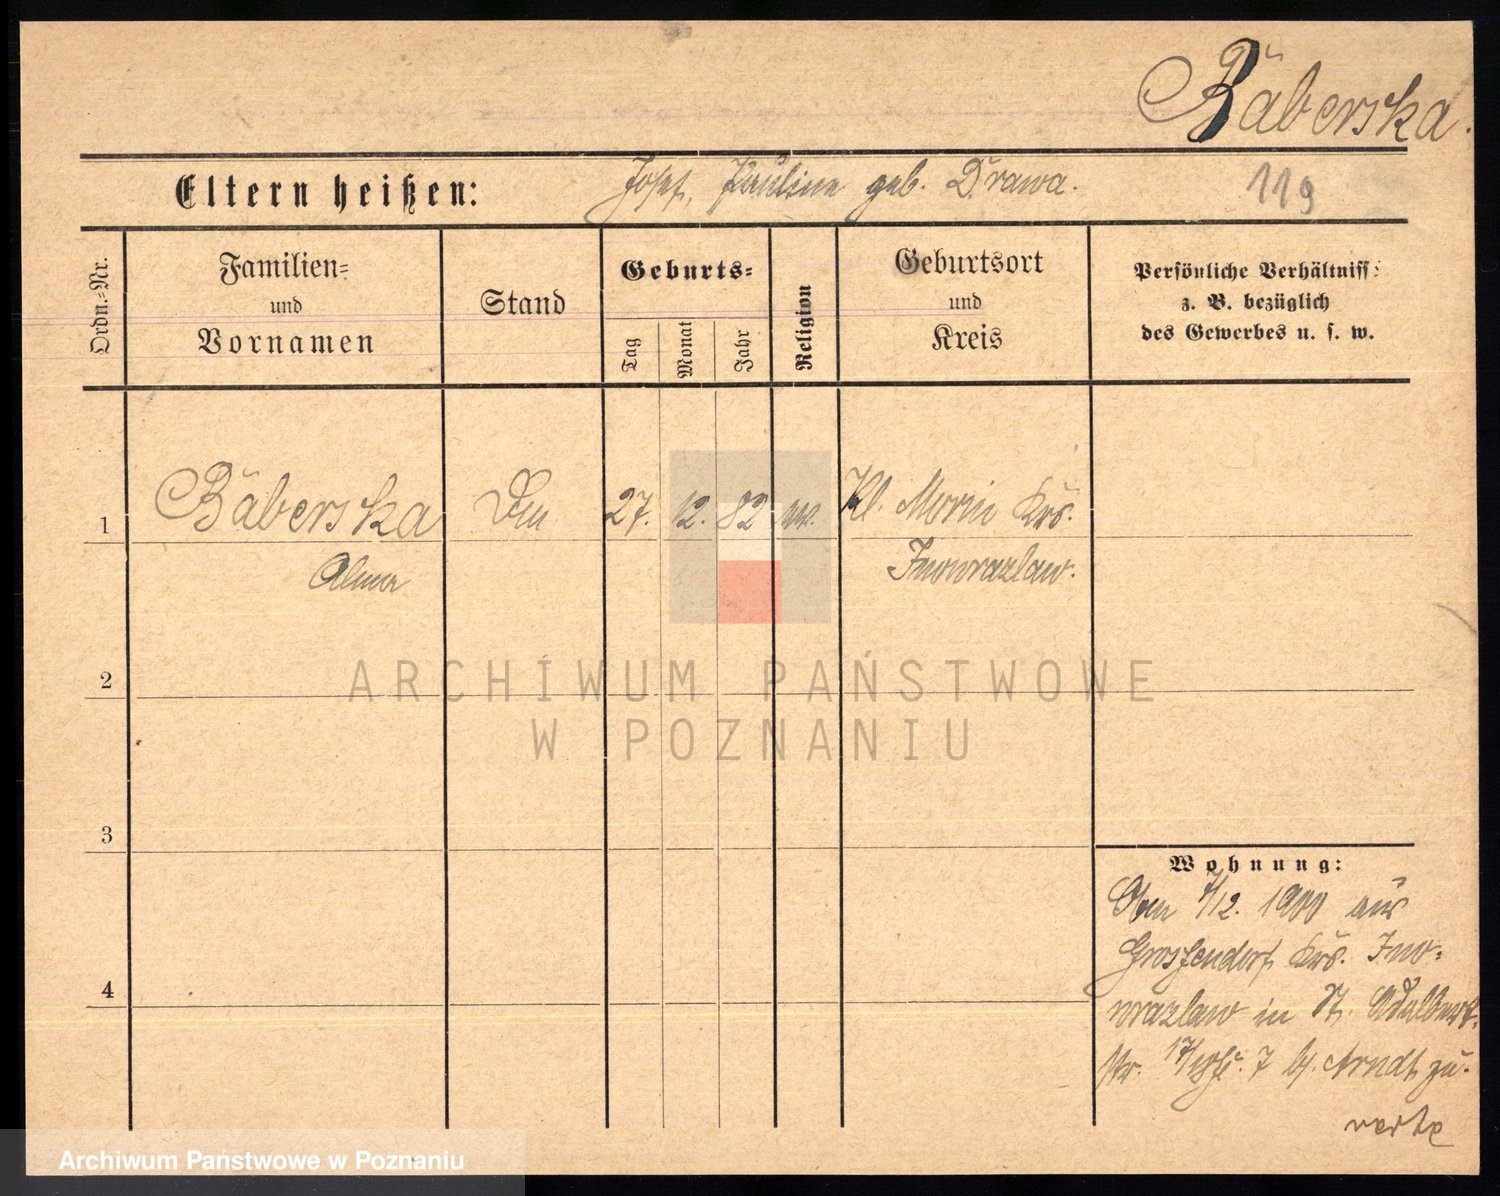 Bäberska.
Eltern heißen: Josef, Pauline geb. Drawa.
119
Ordn.-Nr.
Familien-
und
Vornamen
Stand
Geburts-
Tag
Monat
Jahr
Religion
Geburtsort
und
Kreis
Persönliche Verhältniss:
z. B. bezüglich
des Gewerbes u. s. w.
1 Bäberska 27. 12. 82 Kl. Morin Krs.
Alma Inowrazlaw.
2
3
4
ARCHIWUM PAŃSTWOWE
W POZNANIU
Wohnung:
12. 1900 aus
Grossendorf Krs. Ino-
wrazlaw in St. Adalbert-
str. 17/18 7 b. Arndt zu.
verte
Archiwum Państwowe w Poznaniu